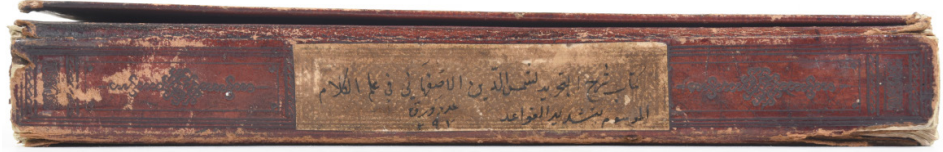 كتاب شرح التجريد لشمس الدين الاصفهاني في علم الكلام
الموسوم بتشديد القواعد
عدد ورق